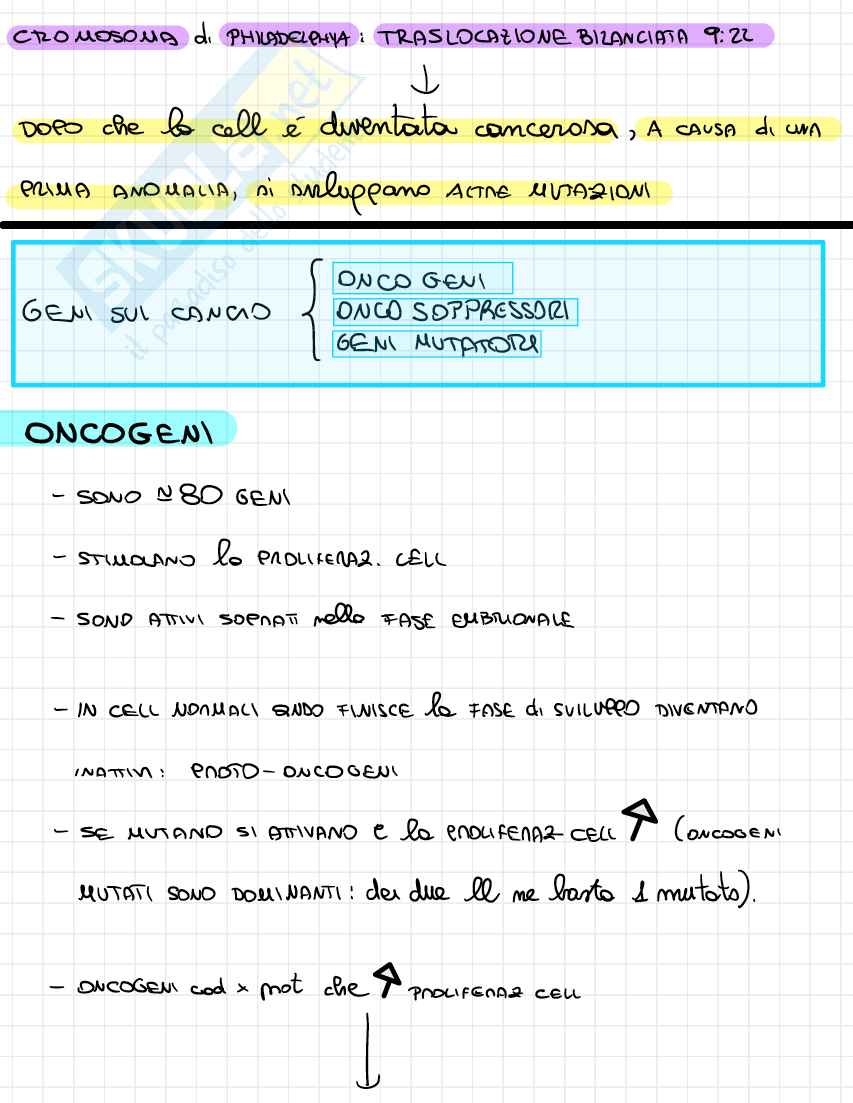 CROMOSOMA di PHILADELPHIA: TRASLOCAZIONE BILANCIATA 9:22
DOPO che la cell é diventata cancerosa, A CAUSA di UNA
PRIMA ANOMALIA, si sviluppano ALTRE MUTAZIONI
SKUOLA.net
il paradiso dello studente
GENI SUL CANCRO
ONCO GENI
ONCO SOPPRESSORI
GENI MUTATORI
ONCOGENI
- SONO ≃ 80 GENI
- STIMOLANO la PROLIFERAZ. CELL
- SONO ATTIVI SOPRATT nella FASE EMBRIONALE
- IN CELL NORMALI QNDO FINISCE la FASE di SVILUPPO DIVENTANO
INATTIVI: PROTO-ONCOGENI
- SE MUTANO SI ATTIVANO e la PROLIFERAZ CELL ↑ (ONCOGENI
MUTATI SONO DOMINANTI: dei due ll ne basta 1 mutato).
- ONCOGENI cod x prot che ↑ PROLIFERAZ CELL